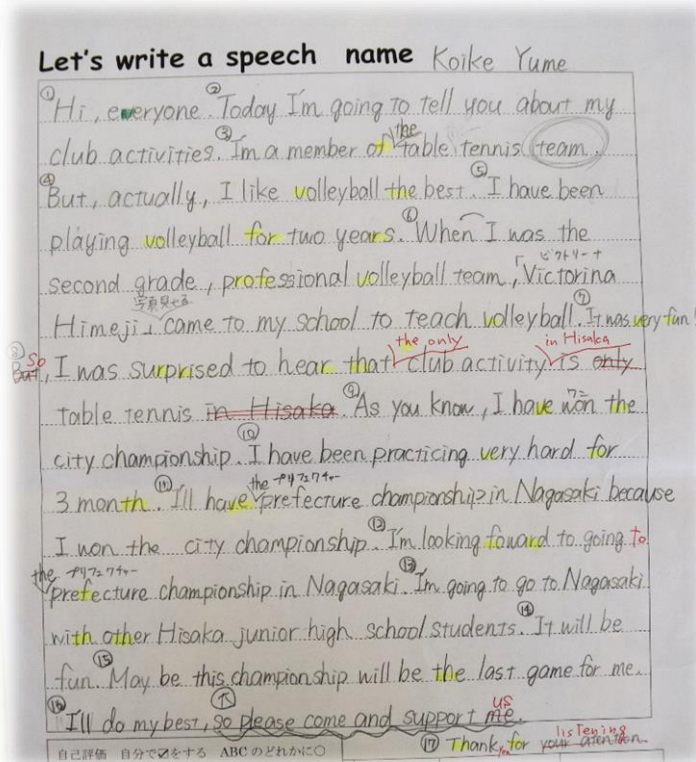 Let's write a speech name Koike Yume
① Hi, everyone. ② Today I'm going to tell you about my
club activities. ③ I'm a member of the table tennis team.
④ But, actually, I like volleyball the best. ⑤ I have been
playing volleyball for two years. ⑥ When I was the
second grade, professional volleyball team, 「Victorina
ビクトリーナ
Himeji」 came to my school to teach volleyball. ⑦ It was very fun!
写真見せる
⑧ But So, I was surprised to hear that the only club activity in Hisaka is only
table tennis in Hisaka. ⑨ As you know, I have won the
ワン
city championship. ⑩ I have been practicing very hard for
3 month. ⑪ I'll have the prefecture championship in Nagasaki because
プリフェクチャー
I won the city championship. ⑫ I'm looking foward to going to
the prefecture championship in Nagasaki. ⑬ I'm going to go to Nagasaki
プリフェクチャー
with other Hisaka junior high school students. ⑭ It will be
fun. ⑮ May be this championship will be the last game for me.
⑯ I'll do my best, so please come and support me. us
⑰ Thank you for your atention. listening
自己評価 自分で☑をする ABCのどれかに○